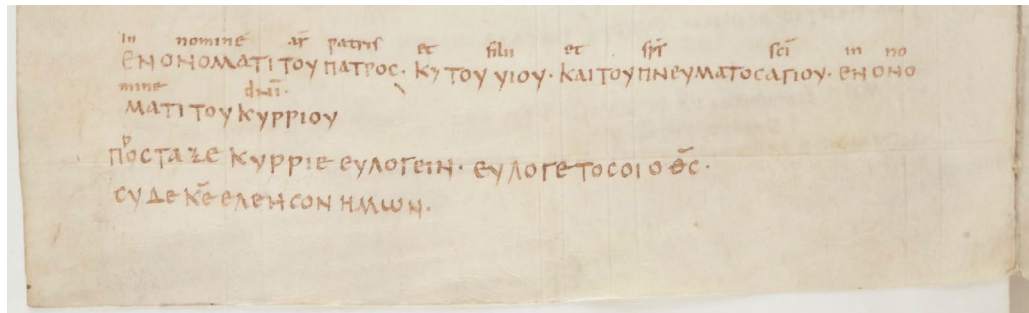 in nomine ar̄ patris et filii et sp̄s sc̄i in no
ΕΝ ΟΝΟΜΑΤΙ ΤΟΥ ΠΑΤΡΟΣ· ΚΥ ΤΟΥ ΥΙΟΥ· ΚΑΙ ΤΟΥ ΠΝΕΥΜΑΤΟΣ ΑΓΙΟΥ· ΕΝ ΟΝΟ
mine dn̄i·
ΜΑΤΙ ΤΟΥ ΚΥΡΡΙΟΥ
ΠΡΟΣΤΑΞΕ ΚΥΡΡΙΕ ΕΥΛΟΓΕΙΝ· ΕΥΛΟΓΕΤΟΣ ΟΙ Ο Θ̄Σ·
ΣΥ ΔΕ Κ̄Ε ΕΛΕΗΣΟΝ ΗΜΩΝ·